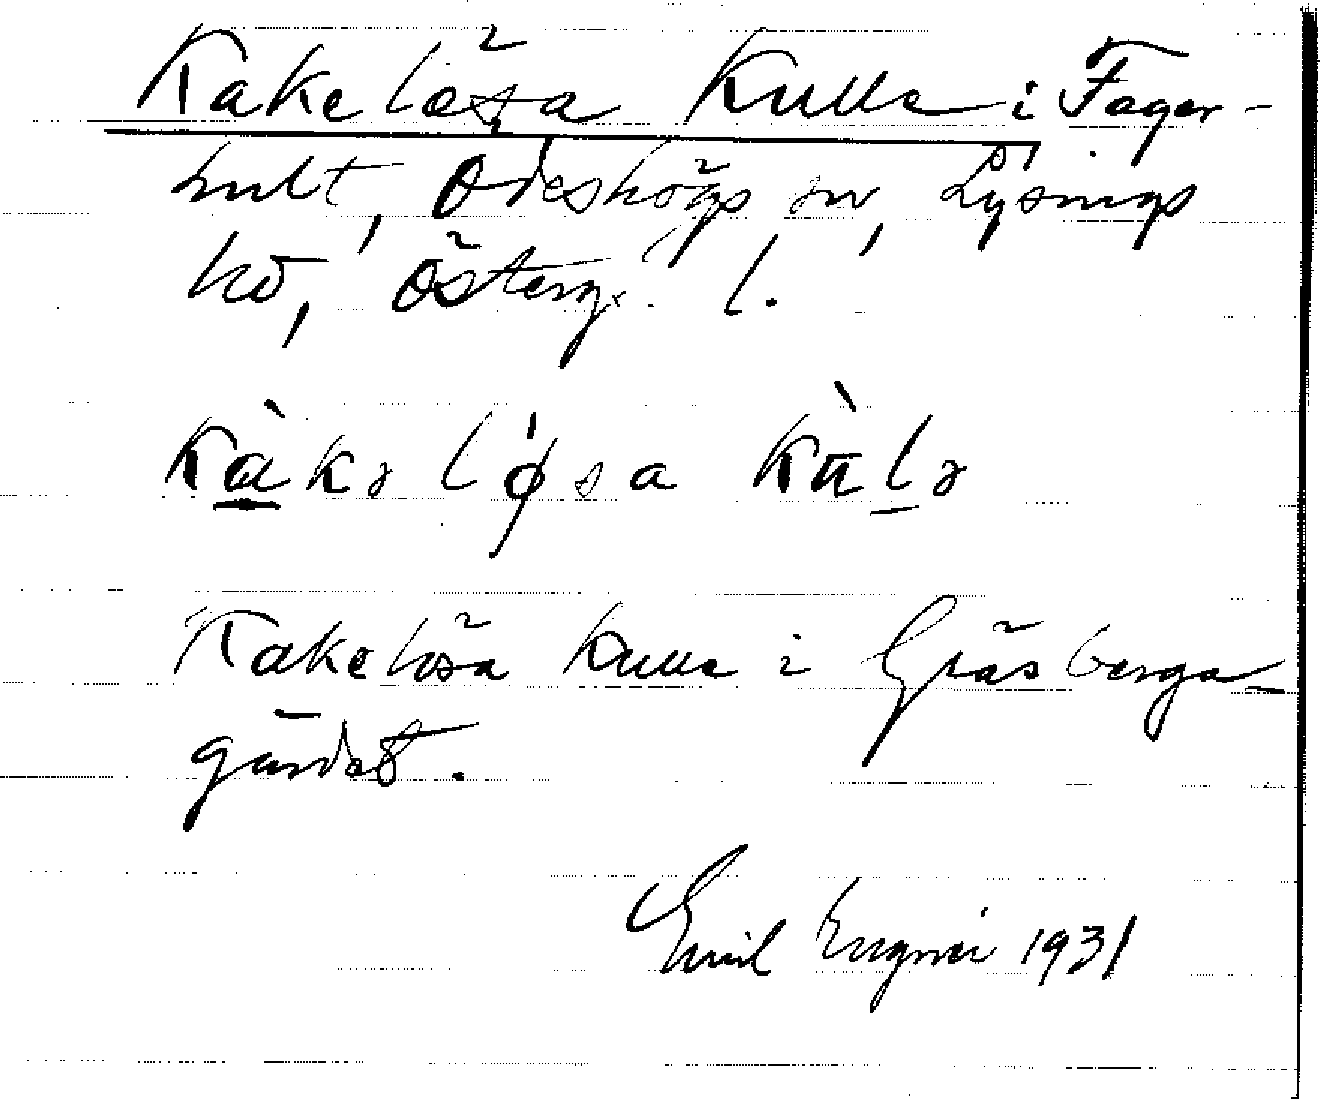 Kakelösa Kulle i Fager-
hult, Ödeshögs sn, Lysings
hd, Österg. l.
kàkə lǿsa kùlə
Kakelösa kulle i Gräsberga-
gärdet.
Emil 1931